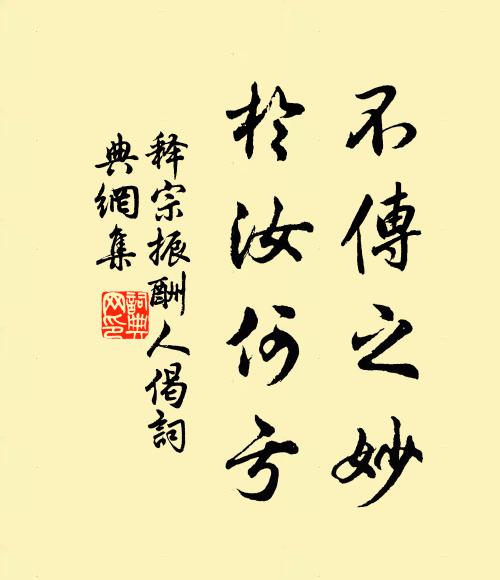 不傳之妙
於汝何亏
释宗振酬人偈詞
典網集
詞典網印